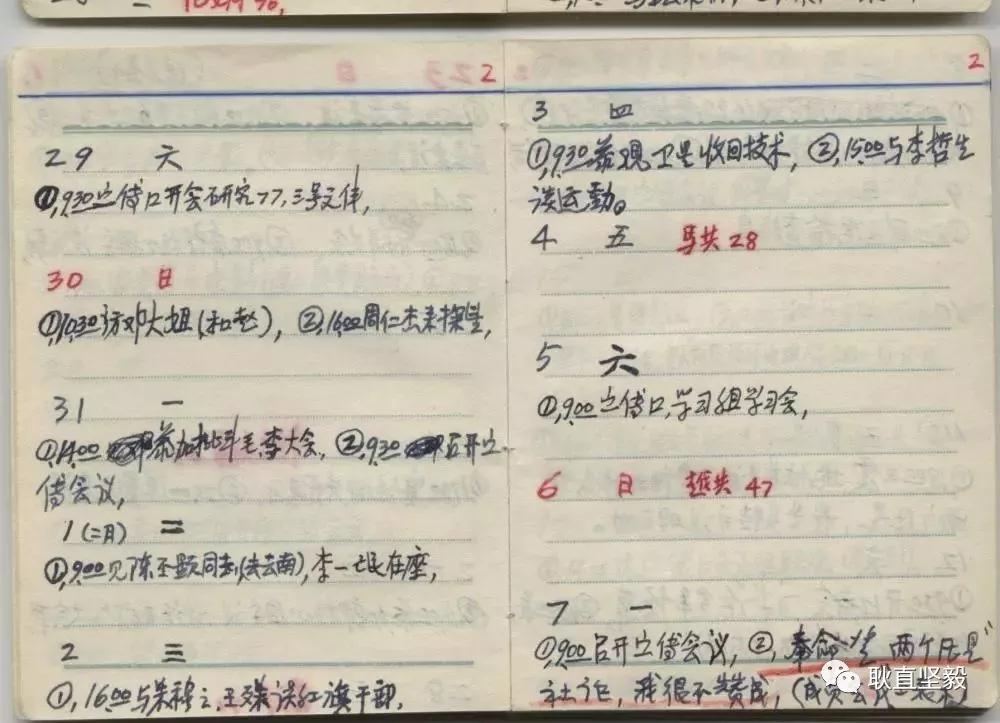 2
29 六
①,9,30宣传口开会研究77,三号文件,
30 日
①,10,30访邓大姐(和赵), ②,16,00周仁杰来探望,
31 一
①,14,00 参加批斗毛,李大会, ②,9,30 召开宣
传会议,
1 (二月) 二
①,9,00见陈丕显同志(去云南), 李一氓在座,
2 三
①, 16,00与朱穆之, 王殊谈红旗干部,
2
3 四
①,9,30参观卫星收回技术, ②,15,00与李哲生
谈运动。
4 五 马共28
5 六
①,9,00宣传口,学习组学习会,
6 日 越共47
7 一
①,9,00召开宣传会议, ②, 奉命发 两个凡是”
社论, 我很不赞成,
耿直坚毅